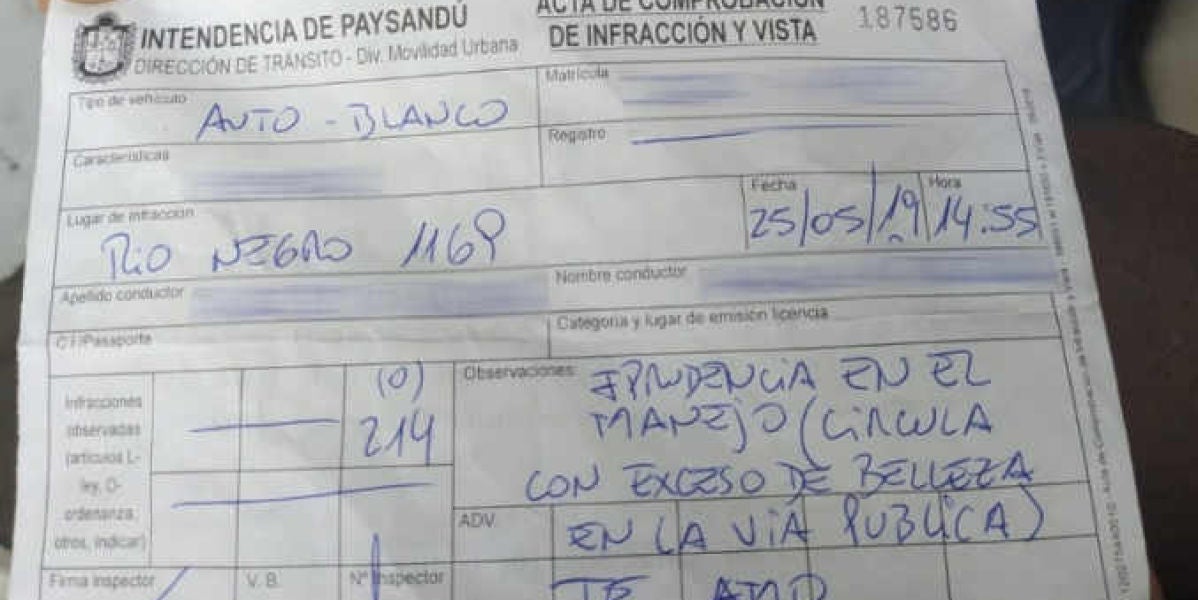 INTENDENCIA DE PAYSANDÚ
DIRECCIÓN DE TRÁNSITO - Div. Movilidad Urbana
ACTA DE COMPROBACIÓN
DE INFRACCIÓN Y VISTA
187586
Tipo de vehículo
AUTO - BLANCO
Matrícula
Registro
Características
Lugar de infracción
RIO NEGRO 1169
Fecha
25/05/19
Hora
14:55
Apellido conductor
Nombre conductor
C.I/Pasaporte
Categoría y lugar de emisión licencia
Infracciones
observadas
(artículos L-
ley, O-
ordenanza,
otros, indicar)
(O)
214
Observaciones:
IPRUDENCIA EN EL
MANEJO (CIRCULA
CON EXCESO DE BELLEZA
EN LA VIA PUBLICA)
ADV.
TE AMO
Firma inspector
V. B.
Nº Inspector